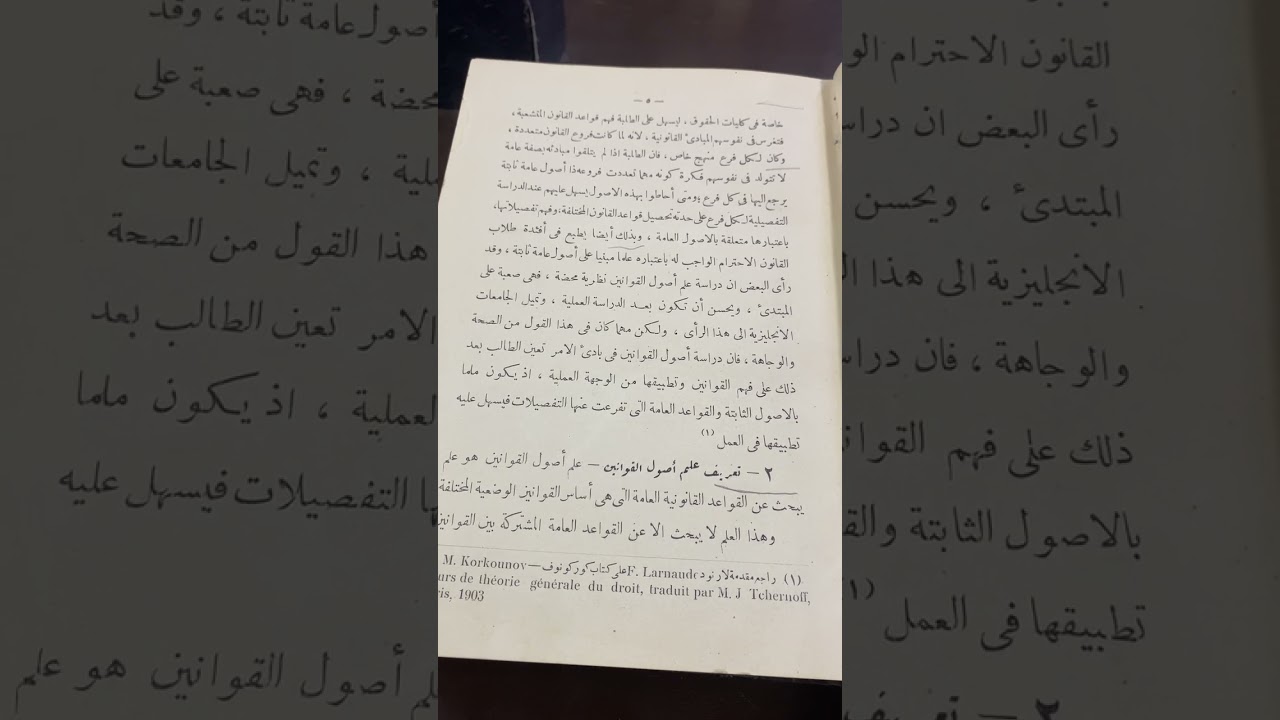 — ٥ —
خاصة فى كليات الحقوق، ليسهل على الطلبة فهم قواعد القانون المتشعبة،
فتغرس فى نفوسهم المبادئ القانونية، لانه لما كانت فروع القانون متعددة،
وكان لكل فرع منهج خاص، فان الطلبة اذا لم يتلقوا مبادئه بصفة عامة
لا تتولد فى نفوسهم فكرة كونه مهما تعددت فروعه ذا أصول عامة ثابتة
يرجع اليها فى كل فرع ومتى أحاطوا بهذه الاصول يسهل عليهم عند الدراسة
التفصيلية لكل فرع على حدته تحصيل قواعد القانون المختلفة، وفهم تفصيلاتها،
باعتبارها متعلقة بالاصول العامة، وبذلك أيضا ينطبع فى أفئدة طلاب
القانون الاحترام الواجب له باعتباره علما مبنيا على أصول عامة ثابتة، وقد
رأى البعض ان دراسة علم أصول القوانين نظرية محضة، فهى صعبة على
المبتدئ، ويحسن أن تكون بعد الدراسة العملية، وتميل الجامعات
الانجليزية الى هذا الرأى، ولكن مهما كان فى هذا القول من الصحة
والوجاهة، فان دراسة أصول القوانين فى بادئ الامر تعين الطالب بعد
ذلك على فهم القوانين وتطبيقها من الوجهة العملية، اذ يكون ملما
بالاصول الثابتة والقواعد العامة التى تفرعت عنها التفصيلات فيسهل عليه
تطبيقها فى العمل (١)
٢ — تعريف علم أصول القوانين — علم أصول القوانين هو علم
يبحث عن القواعد القانونية العامة التى هى أساس القوانين الوضعية المختلفة
وهذا العلم لا يبحث الا عن القواعد العامة المشتركة بين القوانين
(١) راجع مقدمة لارنود F. Larnaude على كتاب كوركونوف — M. Korkounov
urs de théorie générale du droit, traduit par M. J Tchernoff,
ris, 1903